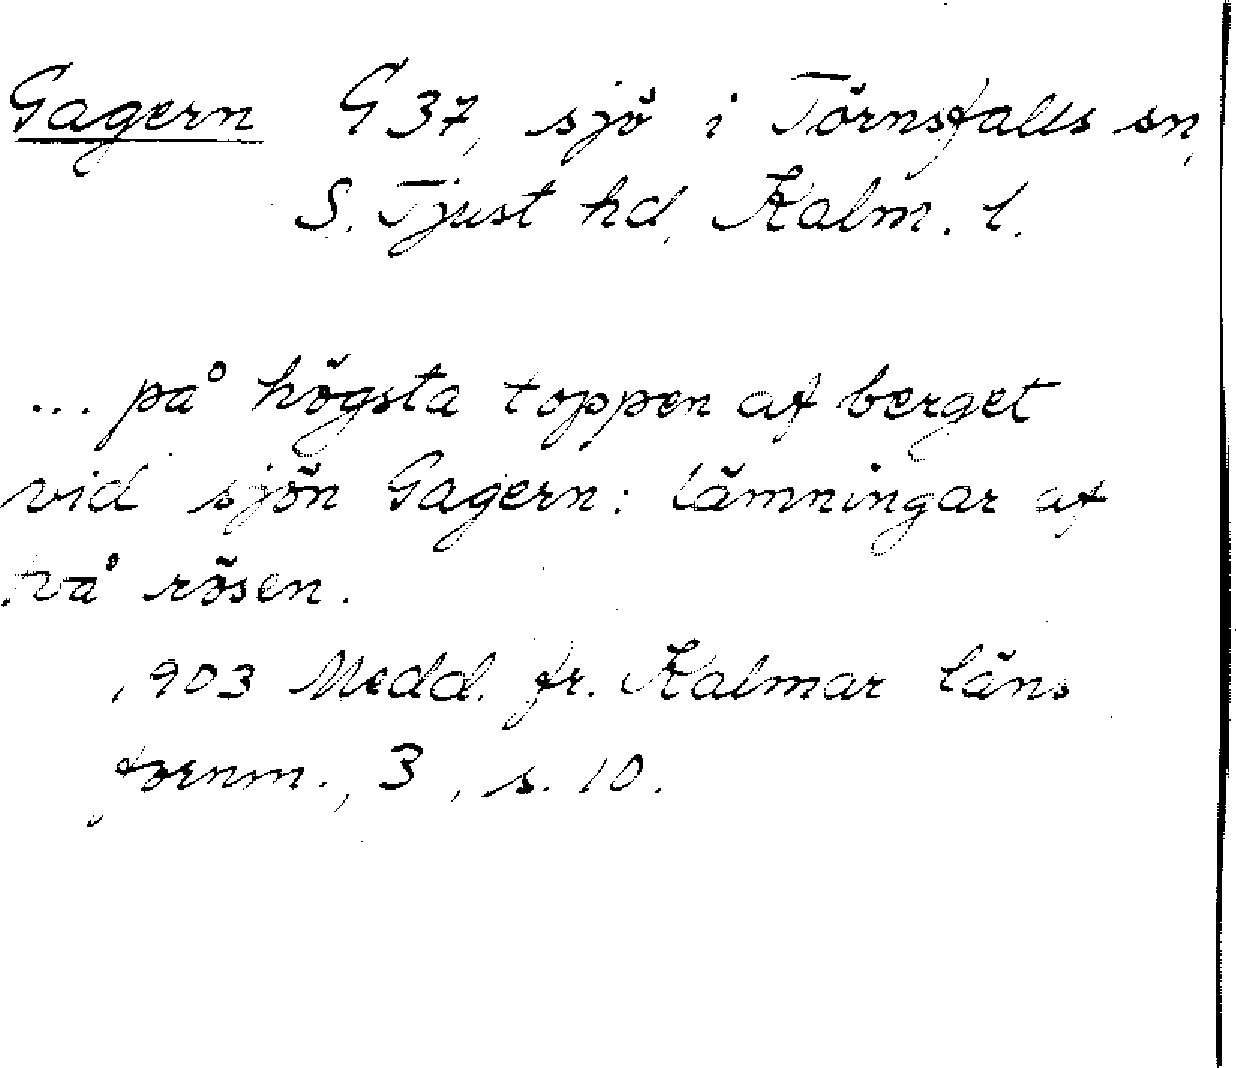 Gagern G 37, sjö i Törnsfalls sn,
S. Tjust hd, Kalm. l.
... på högsta toppen af berget
vid sjön Gagern: lämningar af
två rösen.
1903 Medd. fr. Kalmar läns
fornm., 3, s. 10.